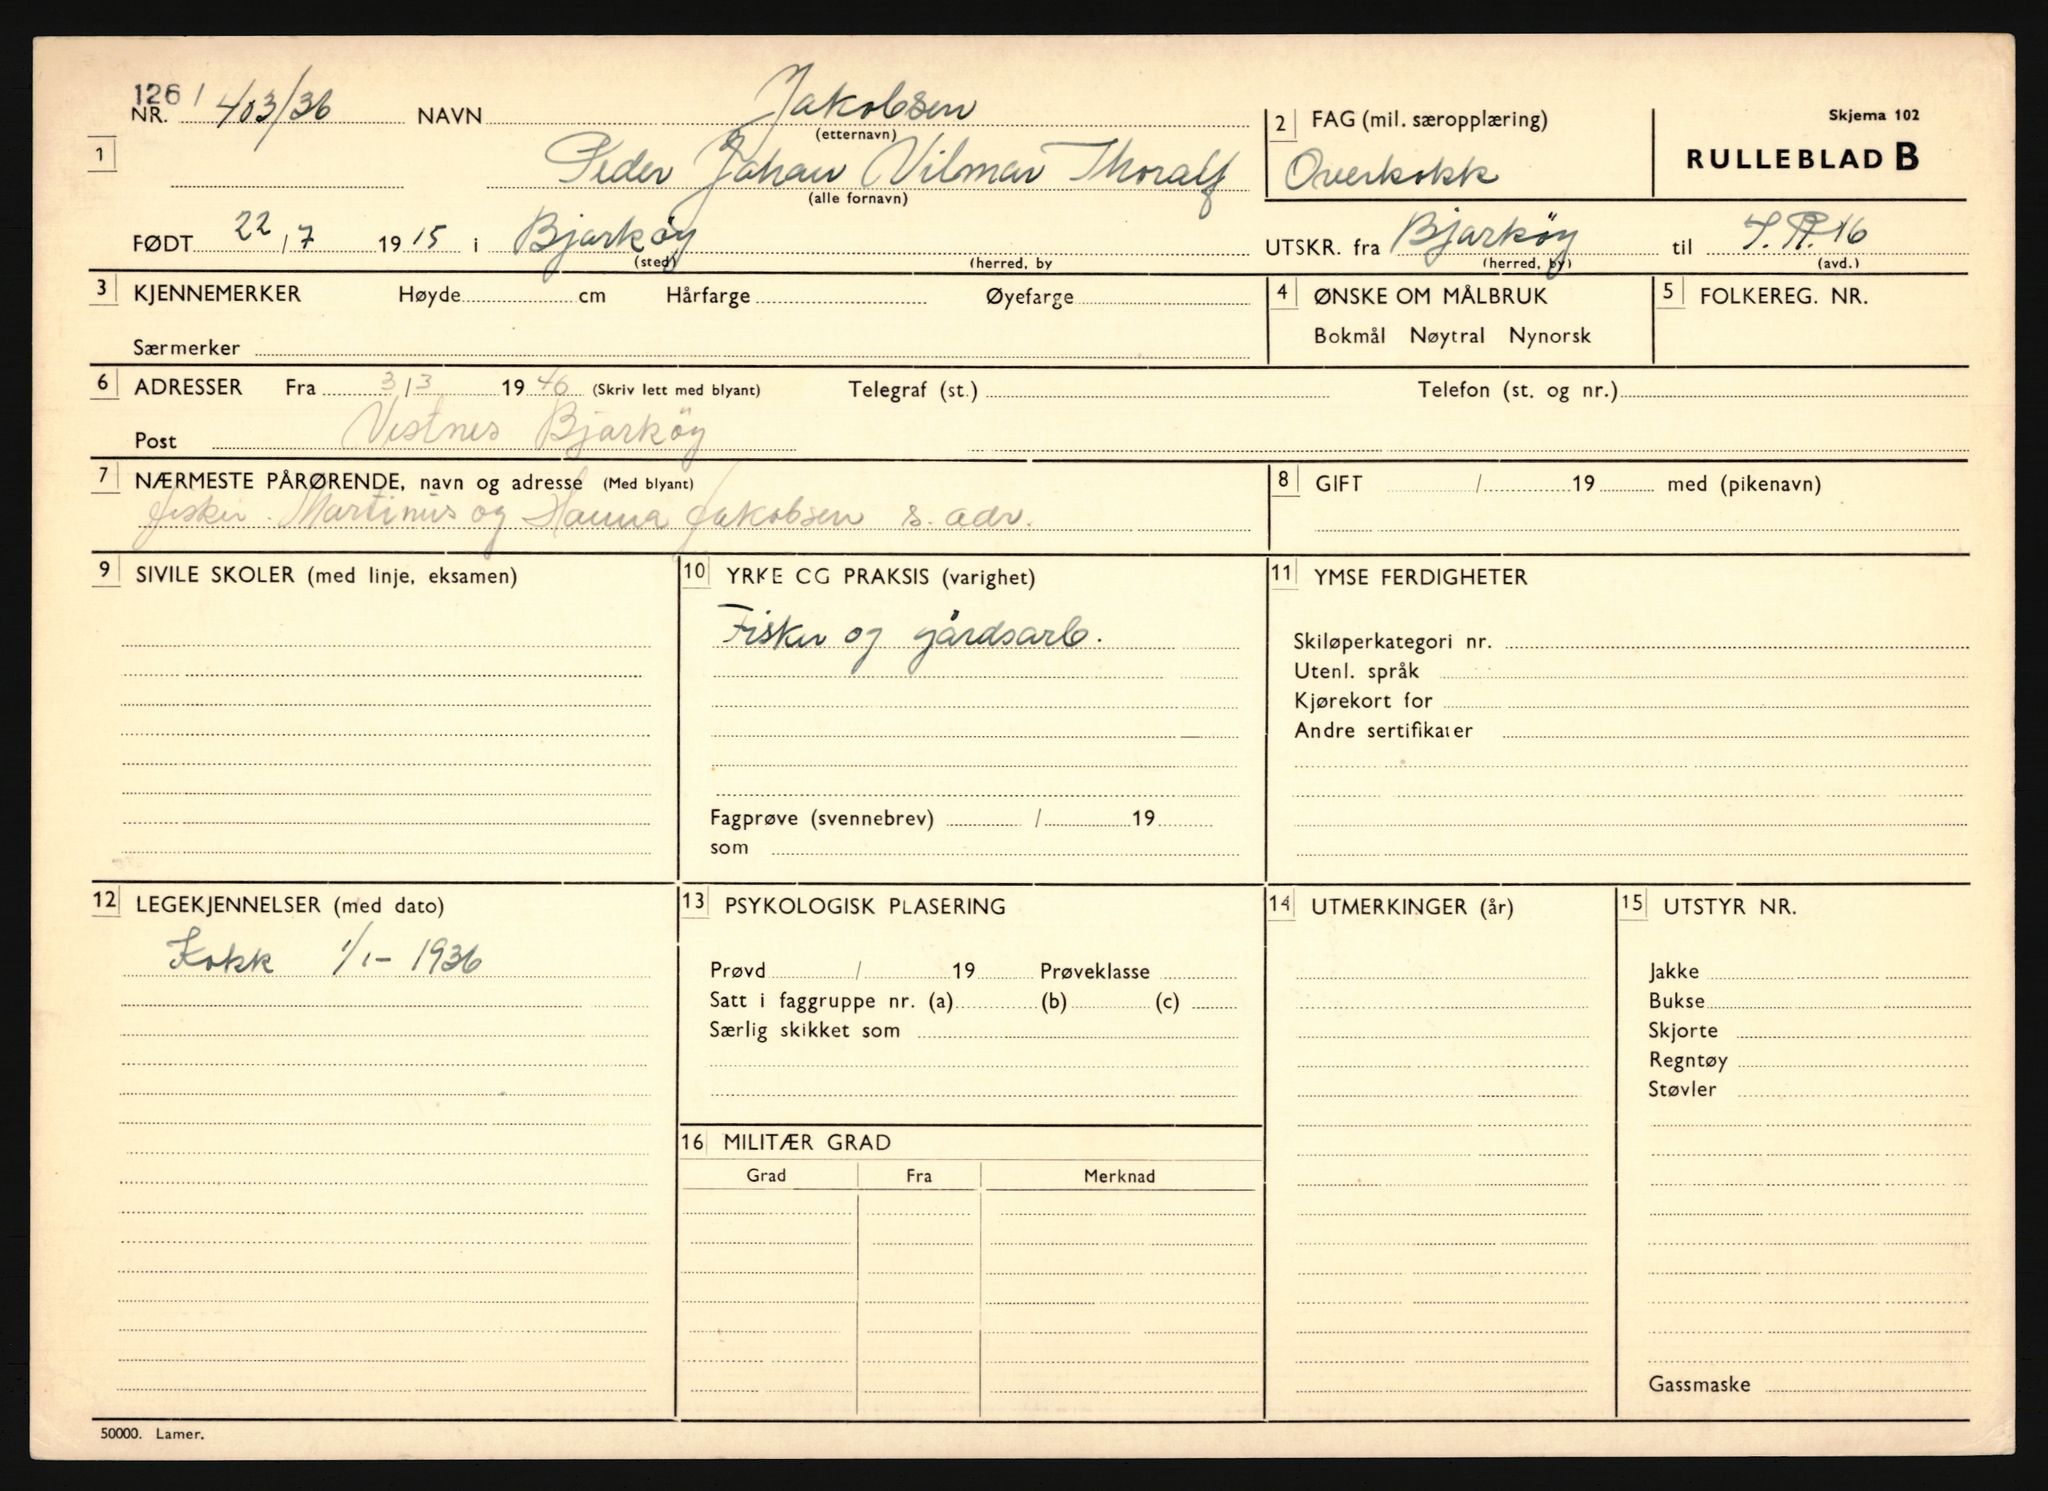 126/ NR. 403/36 NAVN Jakobsen
(etternavn)
1 Peder Johan Vilmar Thoralf
(alle fornavn)
2 FAG (mil. særopplæring)
Overkokk
Skjema 102
RULLEBLAD B
FØDT 22/7 1915 i Bjarkøy
(sted) (herred, by
UTSKR. fra Bjarkøy til I.R.16
(herred, by) (avd.)
3 KJENNEMERKER Høyde cm Hårfarge Øyefarge
Særmerker
4 ØNSKE OM MÅLBRUK
Bokmål Nøytral Nynorsk
5 FOLKEREG. NR.
6 ADRESSER Fra 3/3 1946 (Skriv lett med blyant) Telegraf (st.) Telefon (st. og nr.)
Post Vestnes Bjarkøy
7 NÆRMESTE PÅRØRENDE, navn og adresse (Med blyant)
fisker Martinus og Hanna Jakobsen s. adr.
8 GIFT / 19 med (pikenavn)
9 SIVILE SKOLER (med linje, eksamen)
10 YRKE CG PRAKSIS (varighet)
Fisker og gårdsarb.
Fagprøve (svennebrev) / 19
som
11 YMSE FERDIGHETER
Skiløperkategori nr.
Utenl. språk
Kjørekort for
Andre sertifikater
12 LEGEKJENNELSER (med dato)
Kokk 1/1- 1936
13 PSYKOLOGISK PLASERING
Prøvd / 19 Prøveklasse
Satt i faggruppe nr. (a) (b) (c)
Særlig skikket som
14 UTMERKINGER (år)
15 UTSTYR NR.
Jakke
Bukse
Skjorte
Regntøy
Støvler
Gassmaske
16 MILITÆR GRAD
Grad Fra Merknad
50000. Lamer.